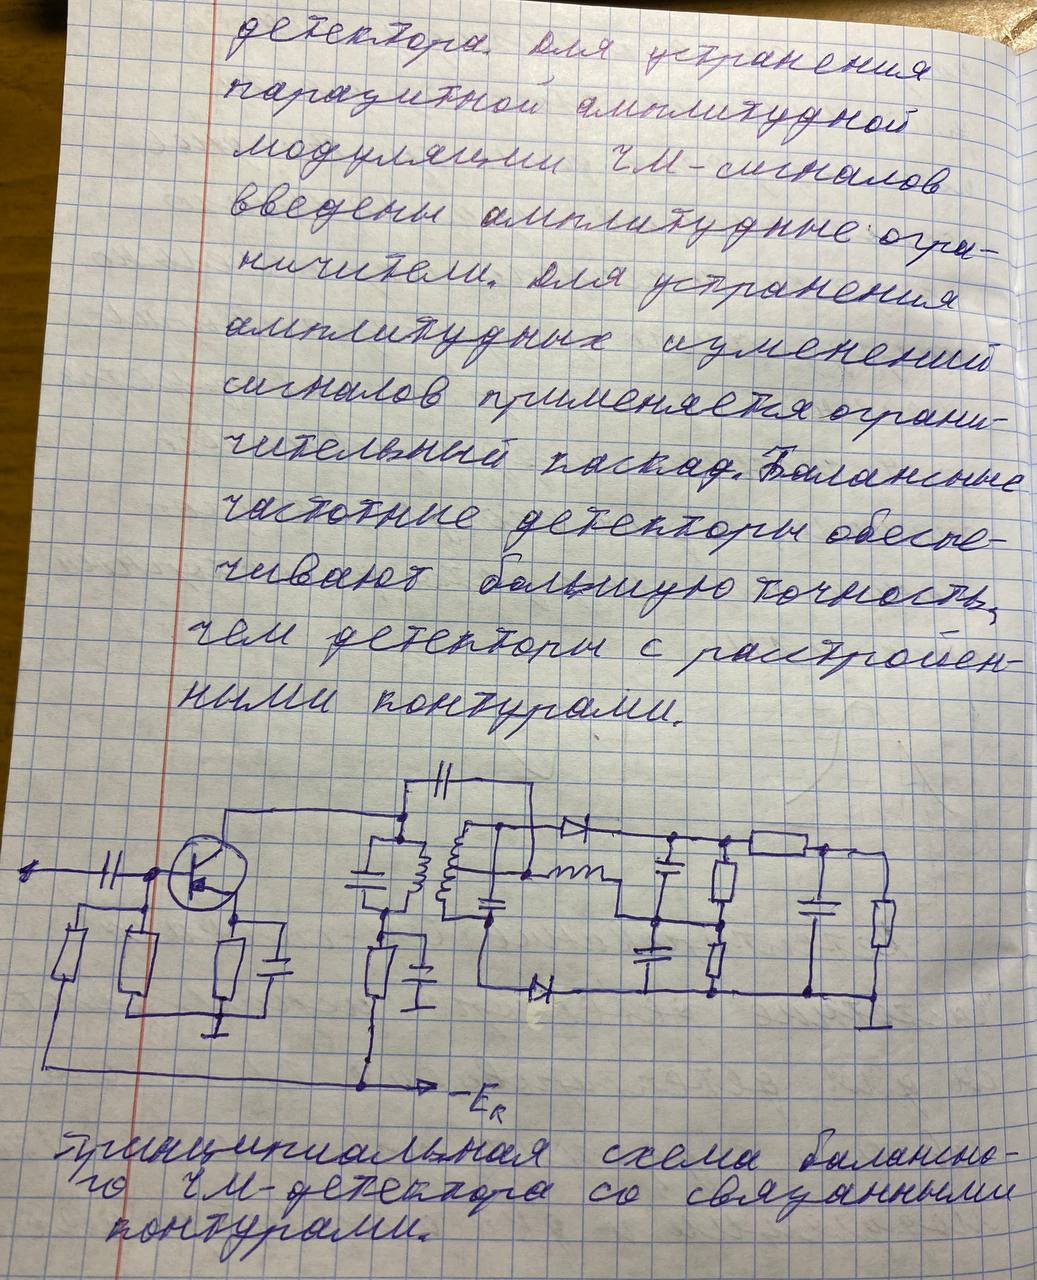 детектора. Для устранения
паразитной амплитудной
модуляции ЧМ-сигналов
введены амплитудные огра-
ничители. Для устранения
амплитудных изменений
сигналов применяется ограни-
чительный каскад. Балансные
частотные детекторы обеспе-
чивают большую точность,
чем детекторы с расстроен-
ными контурами.
-Eк
Принципиальная схема балансно-
го ЧМ-детектора со связанными
контурами.